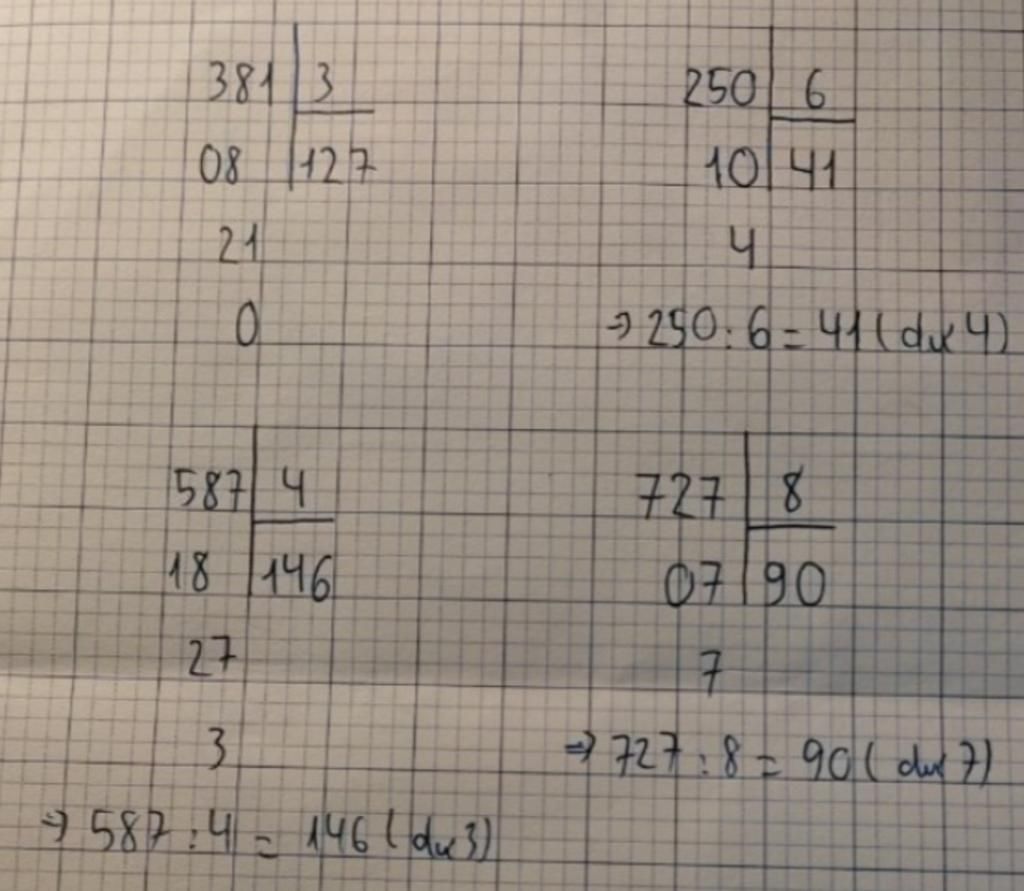 381 3
08 127
21
0
250 6
10 41
4
→ 250 : 6 = 41 (dư 4)
587 4
18 146
27
3
→ 587 : 4 = 146 (dư 3)
727 8
07 90
7
→ 727 : 8 = 90 (dư 7)